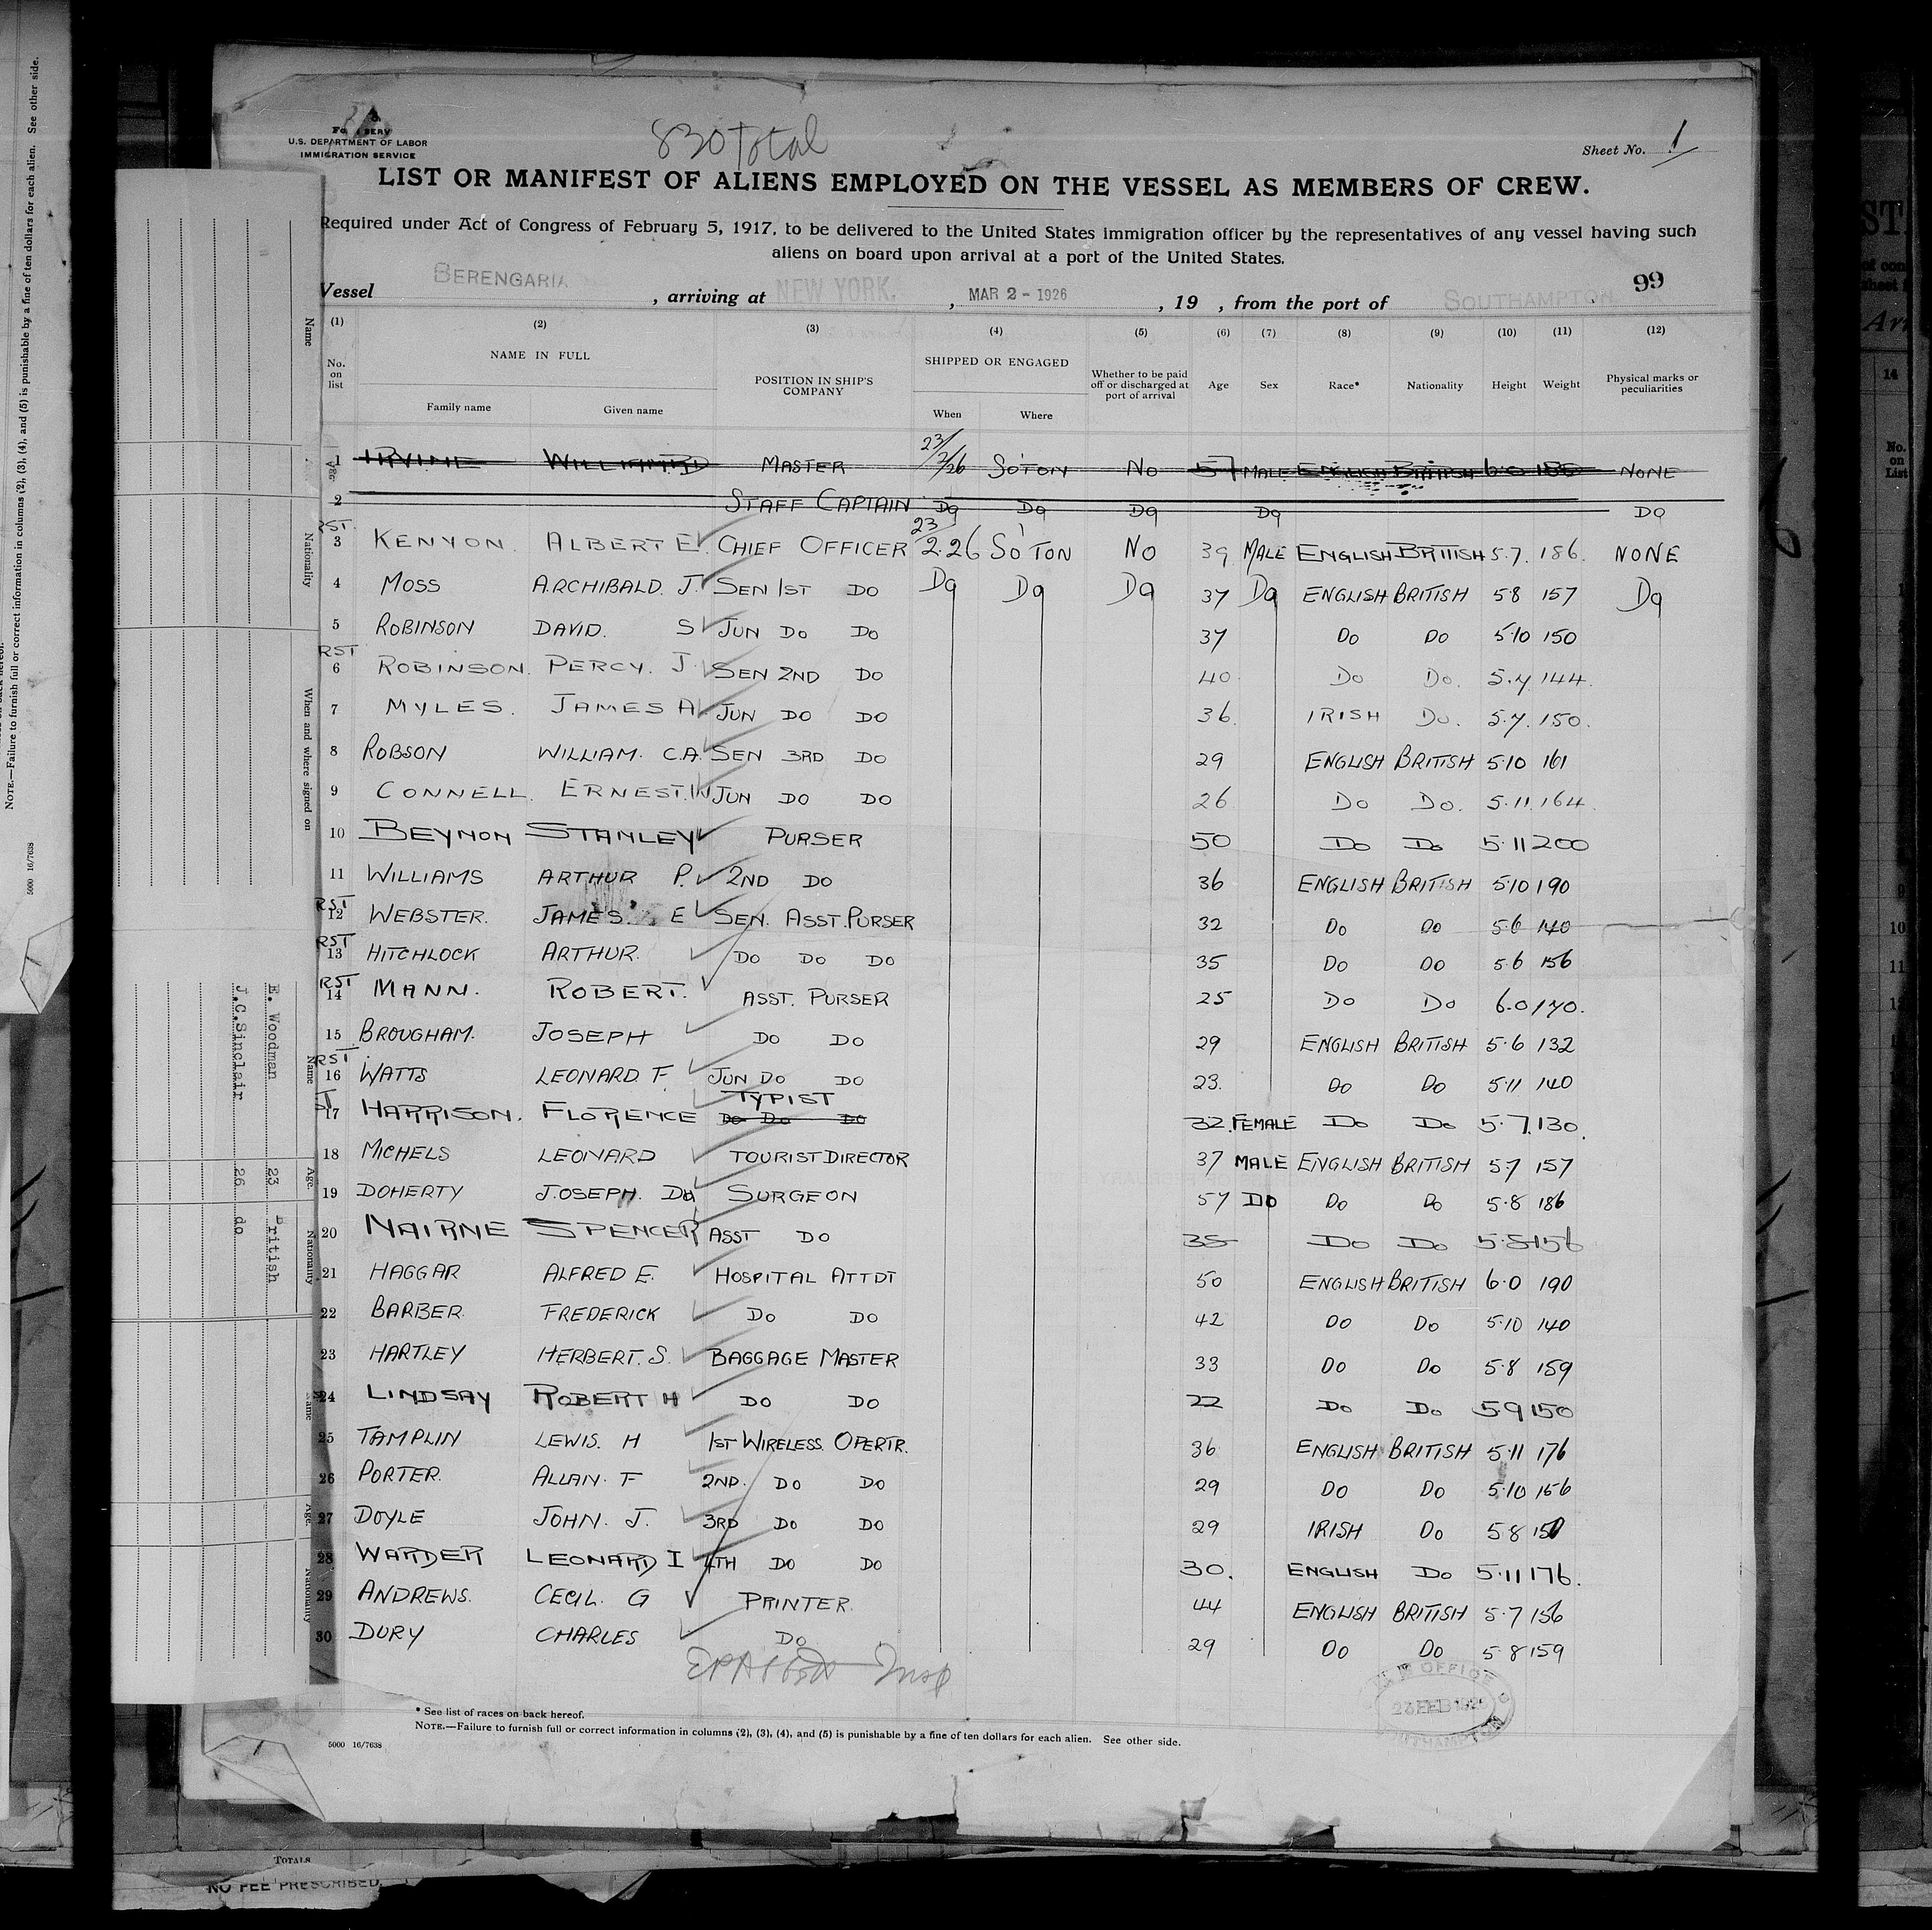 U.S. DEPARTMENT OF LABOR
IMMIGRATION SERVICE
830 Total
Sheet No. 1
LIST OR MANIFEST OF ALIENS EMPLOYED ON THE VESSEL AS MEMBERS OF CREW.
Required under Act of Congress of February 5, 1917, to be delivered to the United States immigration officer by the representatives of any vessel having such
aliens on board upon arrival at a port of the United States.
99
Vessel BERENGARIA, arriving at NEW YORK., MAR 2 - 1926, 19 , from the port of SOUTHAMPTON
(1) (2) (3) (4) (5) (6) (7) (8) (9) (10) (11) (12)
No. on list NAME IN FULL Family name Given name POSITION IN SHIP'S COMPANY SHIPPED OR ENGAGED When Where Whether to be paid off or discharged at port of arrival Age Sex Race* Nationality Height Weight Physical marks or peculiarities
1 IRVINE WILLIAM MASTER 23/2/26 SO'TON NO 57 MALE ENGLISH BRITISH 6.0 NONE
2 STAFF CAPTAIN DO DO DO DO DO
RST 3 KENYON. ALBERT E. CHIEF OFFICER 23 2.26 SO'TON NO 39 MALE ENGLISH BRITISH 5.7. 186. NONE
4 MOSS ARCHIBALD. J. SEN 1ST DO DO DO DO 37 DO ENGLISH BRITISH 5.8 157 DO
5 ROBINSON DAVID. S JUN DO DO 37 DO DO 5.10 150
RST 6 ROBINSON. PERCY. J. SEN 2ND DO 40 DO DO. 5.7. 144.
7 MYLES. JAMES A. JUN DO DO 36. IRISH DO. 5.7. 150.
8 ROBSON WILLIAM. C.A. SEN 3RD DO 29 ENGLISH BRITISH 5.10 161
9 CONNELL. ERNEST. W JUN DO DO 26 DO DO. 5.11. 164.
10 BEYNON STANLEY PURSER 50 DO DO 5.11 200
11 WILLIAMS ARTHUR P. 2ND DO 36 ENGLISH BRITISH 5.10 190
RST 12 WEBSTER. JAMES. E SEN. ASST. PURSER 32 DO DO 5.6 140
RST 13 HITCHLOCK ARTHUR. DO DO DO 35 DO DO 5.6 156
RST 14 MANN. ROBERT. ASST. PURSER 25 DO DO 6.0 170.
15 BROUGHAM. JOSEPH DO DO 29 ENGLISH BRITISH 5.6 132
RST 16 WATTS LEONARD. F. JUN DO DO 23. DO DO 5.11 140
ST 17 HARRISON. FLORENCE TYPIST DO DO DO 32. FEMALE DO DO 5.7. 130.
18 MICHELS LEONARD TOURIST DIRECTOR 37 MALE ENGLISH BRITISH 5.7 157
19 DOHERTY JOSEPH. SURGEON 57 DO DO DO 5.8 186
20 NAIRNE SPENCER ASST DO 35 DO DO 5.8 156
21 HAGGAR ALFRED E. HOSPITAL ATTDT 50 ENGLISH BRITISH 6.0 190
22 BARBER FREDERICK DO DO 42 DO DO 5.10 140
23 HARTLEY HERBERT. S. BAGGAGE MASTER 33 DO DO 5.8 159
24 LINDSAY ROBERT H DO DO 22 DO DO 5.9 150
25 TAMPLIN LEWIS. H 1ST WIRELESS OPERTR. 36 ENGLISH BRITISH 5.11 176
26 PORTER. ALLAN. F 2ND. DO DO 29 DO DO 5.10 156
27 DOYLE JOHN. J. 3RD DO DO 29 IRISH DO 5.8 150
28 WARDER LEONARD I 4TH DO DO 30. ENGLISH DO 5.11 176.
29 ANDREWS. CECIL. G PRINTER. 44 ENGLISH BRITISH 5.7 156
30 DURY CHARLES DO 29 DO DO 5.8 159
Insp
OFFICE
FEB 1926
SOUTHAMPTON
* See list of races on back hereof.
NOTE.—Failure to furnish full or correct information in columns (2), (3), (4), and (5) is punishable by a fine of ten dollars for each alien. See other side.
5000 16/7638
Name
Nationality
When and where signed on
Name
Age
Nationality
Name
Age
Nationality
E. Woodman 23 British
J.C.Sinclair 26 do
NOTE.—Failure to furnish full or correct information in columns (2), (3), (4), and (5) is punishable by a fine of ten dollars for each alien. See other side.
5000 16/7638
TOTALS
NO FEE PRESCRIBED.
14
No. on List
10
11